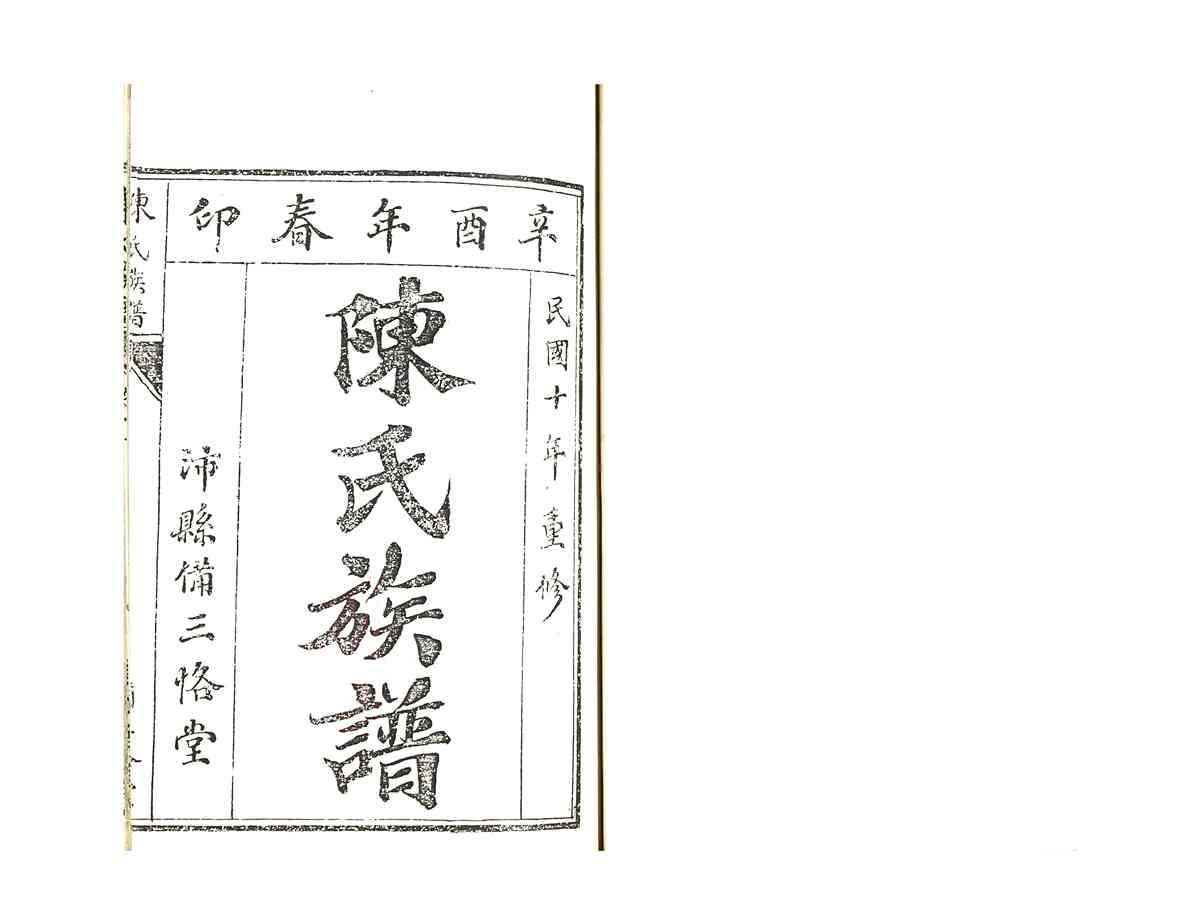 辛酉年春印
民國十年重修
陳氏族譜
沛縣備三恪堂
陳氏族譜